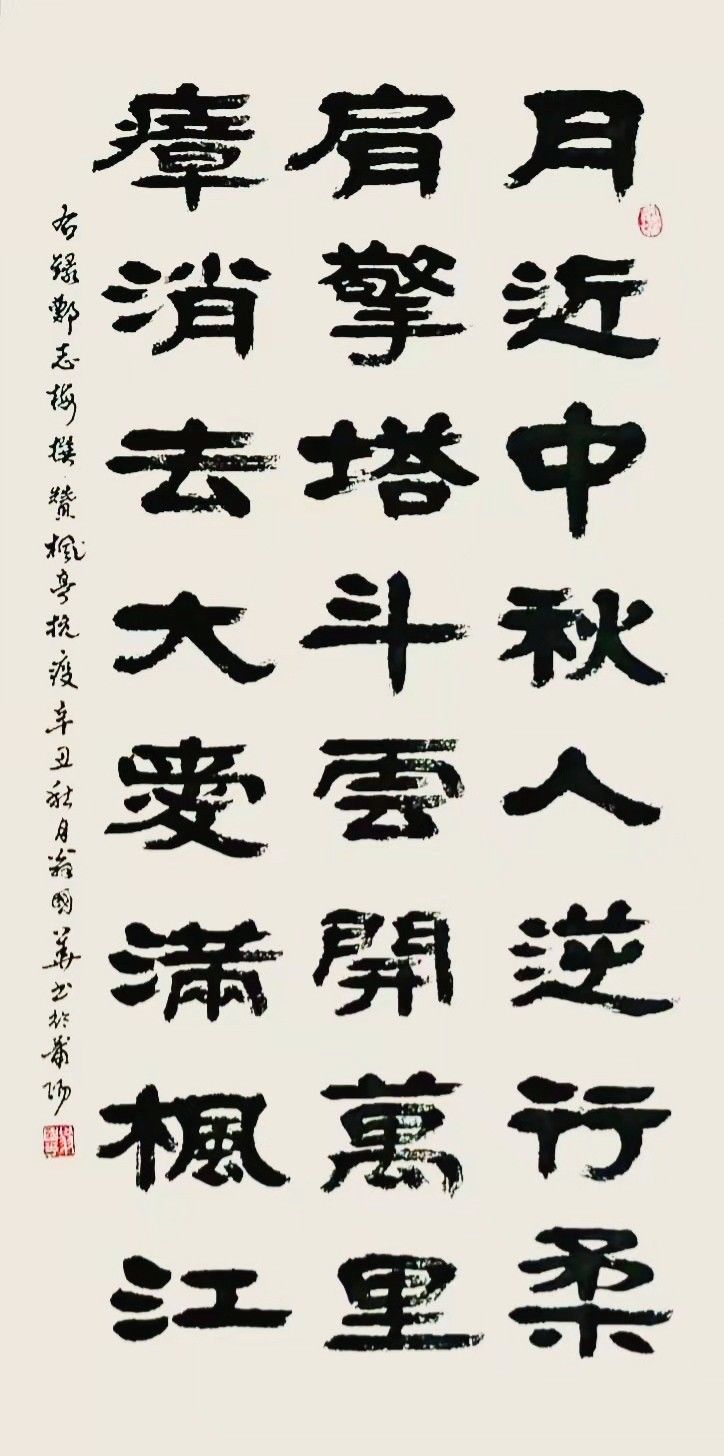 月近中秋人逆行柔
肩擎塔斗雲開萬里
瘴消去大愛滿楓江
右錄鄭志梅撰贊楓亭抗疫辛丑秋月翁國華書於莆陽